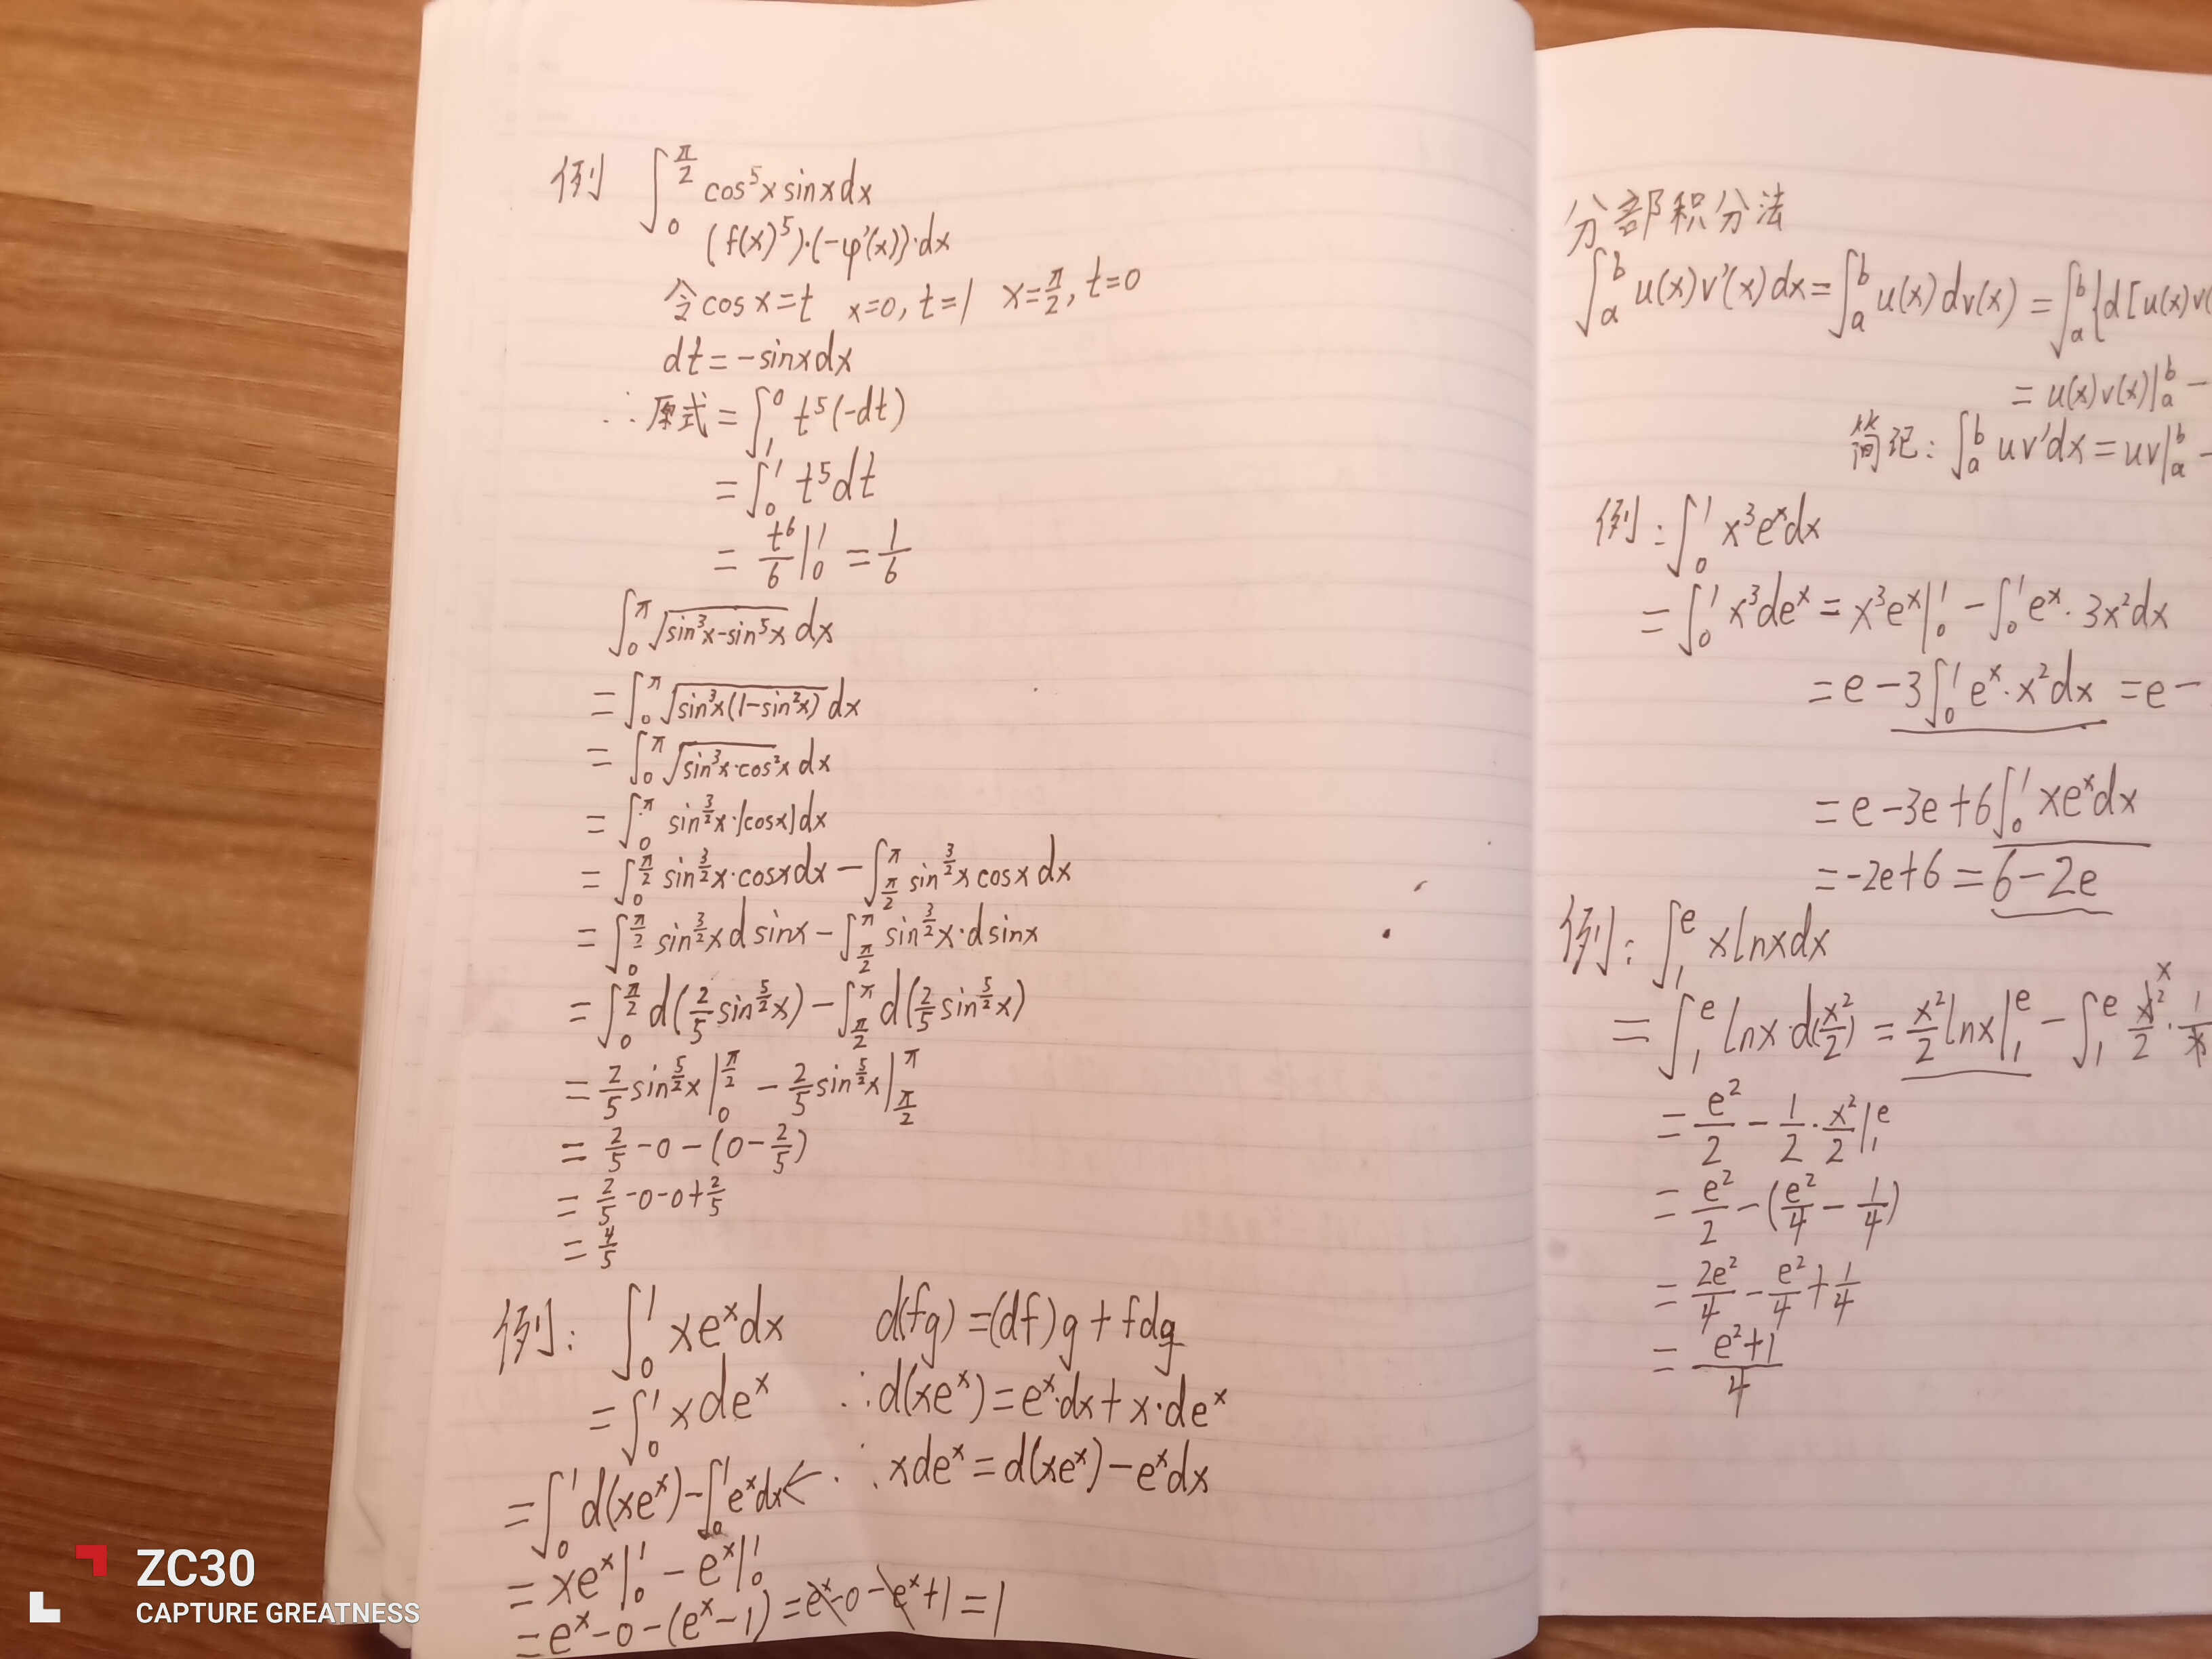 例 ∫₀^(π/2) cos⁵x sinxdx
(f(x)⁵)·(-φ'(x))·dx
令cosx=t x=0, t=1 x=π/2, t=0
dt=-sinxdx
∴原式=∫₁⁰ t⁵(-dt)
=∫₀¹ t⁵dt
= t⁶/6|₀¹ = 1/6
∫₀^π √(sin³x-sin⁵x) dx
=∫₀^π √(sin³x(1-sin²x)) dx
=∫₀^π √(sin³x·cos²x) dx
=∫₀^π sin^(3/2)x·|cosx|dx
=∫₀^(π/2) sin^(3/2)x·cosxdx-∫_(π/2)^π sin^(3/2)x cosx dx
=∫₀^(π/2) sin^(3/2)x d sinx-∫_(π/2)^π sin^(3/2)x·d sinx
=∫₀^(π/2) d(2/5 sin^(5/2)x)-∫_(π/2)^π d(2/5 sin^(5/2)x)
=2/5 sin^(5/2)x|₀^(π/2) - 2/5 sin^(5/2)x|_(π/2)^π
= 2/5-0-(0-2/5)
= 2/5-0-0+2/5
= 4/5
例: ∫₀¹ xeˣdx d(fg)=(df)g+fdg
=∫₀¹ xdeˣ ∴d(xeˣ)=eˣ·dx+x·deˣ
=∫₀¹ d(xeˣ)-∫₀¹ eˣdx← ∴xdeˣ=d(xeˣ)-eˣdx
=xeˣ|₀¹ - eˣ|₀¹
=eˣ-0-(eˣ-1)=eˣ-0-eˣ+1=1
分部积分法
∫ₐᵇ u(x)v'(x)dx=∫ₐᵇ u(x)dv(x)=∫ₐᵇ{d[u(x)v(
=u(x)v(x)|ₐᵇ-
简记:∫ₐᵇ uv'dx=uv|ₐᵇ-
例:∫₀¹ x³eˣdx
=∫₀¹ x³deˣ=x³eˣ|₀¹-∫₀¹ eˣ·3x²dx
=e-3∫₀¹ eˣ·x²dx=e-
=e-3e+6∫₀¹ xeˣdx
=-2e+6=6-2e
例:∫₁ᵉ xlnxdx
=∫₁ᵉ lnx·d(x²/2)=x²/2 lnx|₁ᵉ-∫₁ᵉ x²/2·1/x
=e²/2-1/2·x²/2|₁ᵉ
=e²/2-(e²/4-1/4)
=2e²/4-e²/4+1/4
=(e²+1)/4
ZC30
CAPTURE GREATNESS